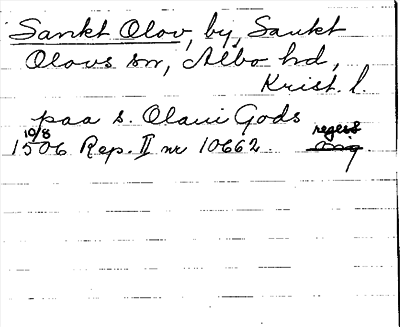 Sankt Olov, by, Sankt
Olovs sn, Albo hd,
Krist. l.
paa s. Olaui Gods
10/8 regest
1506 Rep. II nr 10662. orig